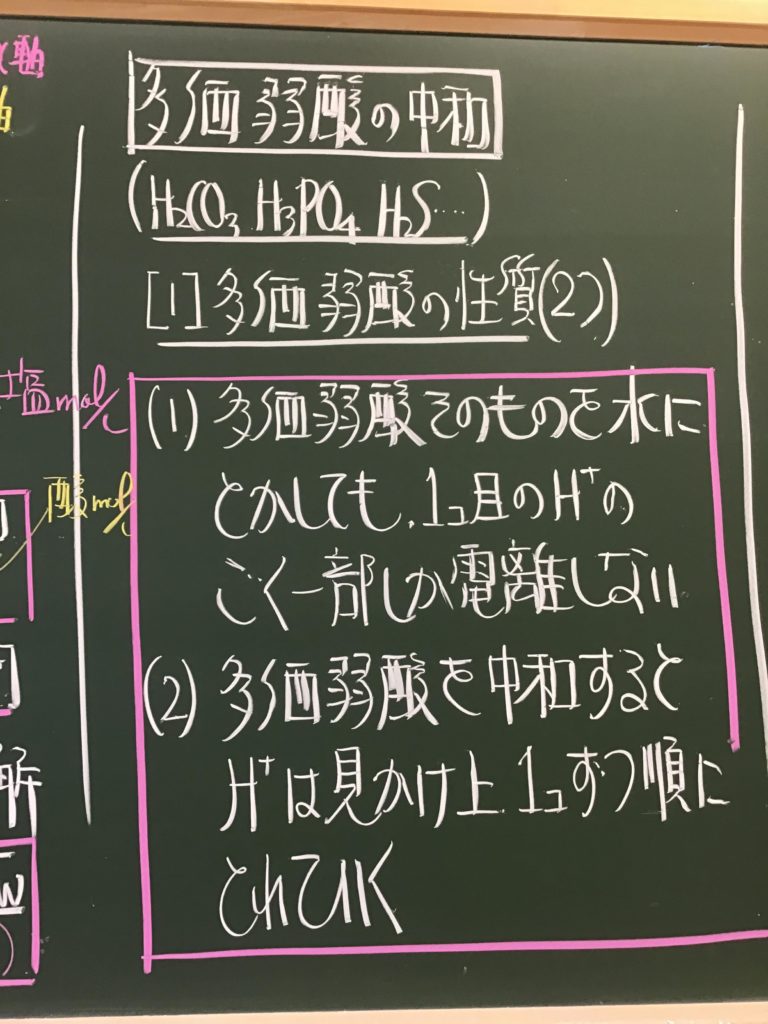 軸
多価弱酸の中和
(H₂CO₃ H₃PO₄ H₂S…)
[1]多価弱酸の性質(2つ)
塩mol/L
酸mol/L
(1) 多価弱酸そのものを水に
とかしても、1コ目のH⁺の
ごく一部しか電離しない
(2) 多価弱酸を中和すると
H⁺は見かけ上、1コずつ順に
とれていく
解